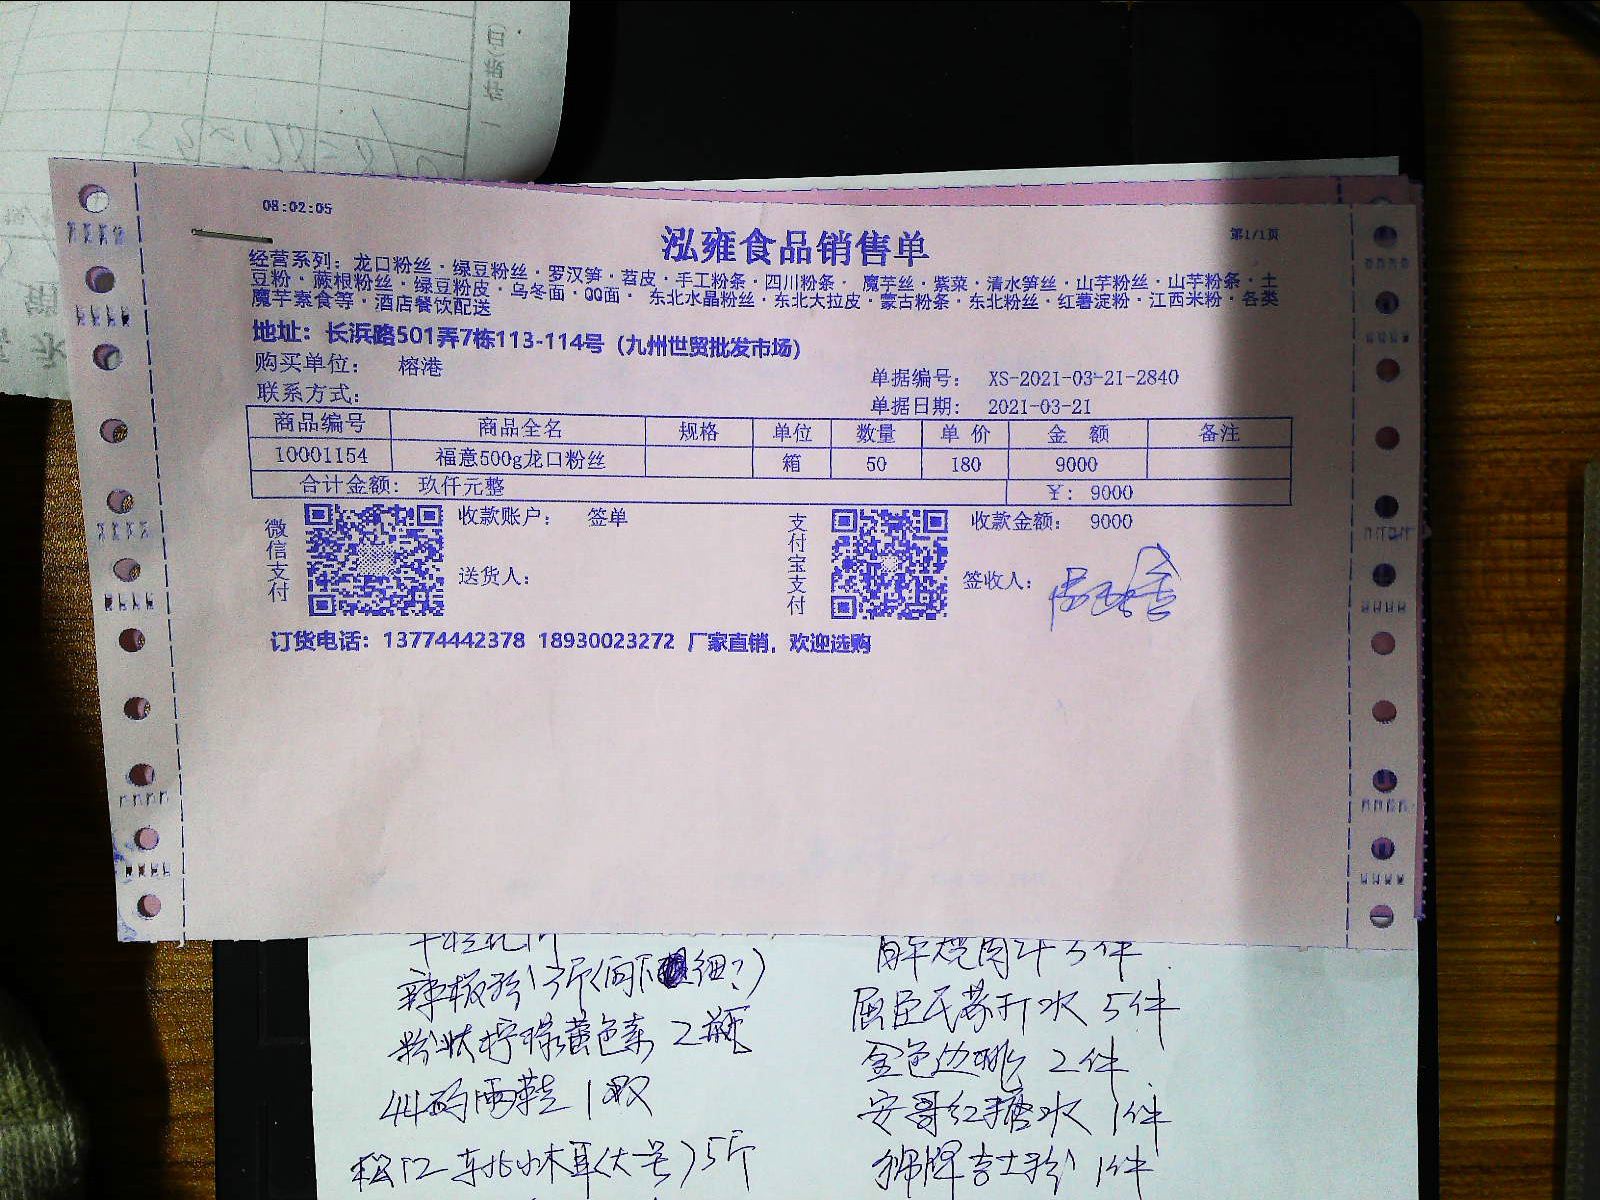 08:02:05
泓雍食品销售单
第1/1页
经营系列：龙口粉丝·绿豆粉丝·罗汉笋·苕皮·手工粉条·四川粉条· 魔芋丝·紫菜·清水笋丝·山芋粉丝·山芋粉条·土
豆粉·蕨根粉丝·绿豆粉皮·乌冬面·QQ面· 东北水晶粉丝·东北大拉皮·蒙古粉条·东北粉丝·红薯淀粉·江西米粉·各类
魔芋素食等·酒店餐饮配送
地址：长浜路501弄7栋113-114号（九州世贸批发市场）
购买单位： 榕港
单据编号： XS-2021-03-21-2840
联系方式：
单据日期： 2021-03-21
商品编号 商品全名 规格 单位 数量 单 价 金 额 备注
10001154 福意500g龙口粉丝 箱 50 180 9000
合计金额： 玖仟元整 ¥：9000
微信支付
收款账户： 签单
支付宝支付
收款金额： 9000
送货人：
签收人：
订货电话：13774442378 18930023272 厂家直销，欢迎选购
辣椒粉 3斤
粉状柠檬黄色素 2瓶
44码雨鞋 1双
东北小木耳(大号)5斤
屈臣氏苏打水 5件
金色边桃 2件
安哥红糖水 1件
狮牌吉士粉 1件